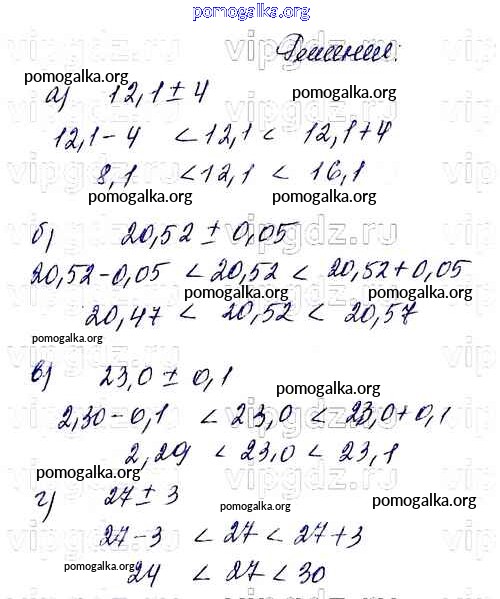 pomogalka.org
Решение:
pomogalka.org
а) 12,1 ± 4
pomogalka.org
12,1 - 4 < 12,1 < 12,1 + 4
8,1 < 12,1 < 16,1
pomogalka.org pomogalka.org
б) 20,52 ± 0,05
20,52 - 0,05 < 20,52 < 20,52 + 0,05
pomogalka.org pomogalka.org
20,47 < 20,52 < 20,57
pomogalka.org
в) 23,0 ± 0,1
pomogalka.org
2,30 - 0,1 < 23,0 < 23,0 + 0,1
2,29 < 23,0 < 23,1
pomogalka.org
г) 27 ± 3
pomogalka.org pomogalka.org
27 - 3 < 27 < 27 + 3
pomogalka.org pomogalka.org
24 < 27 < 30